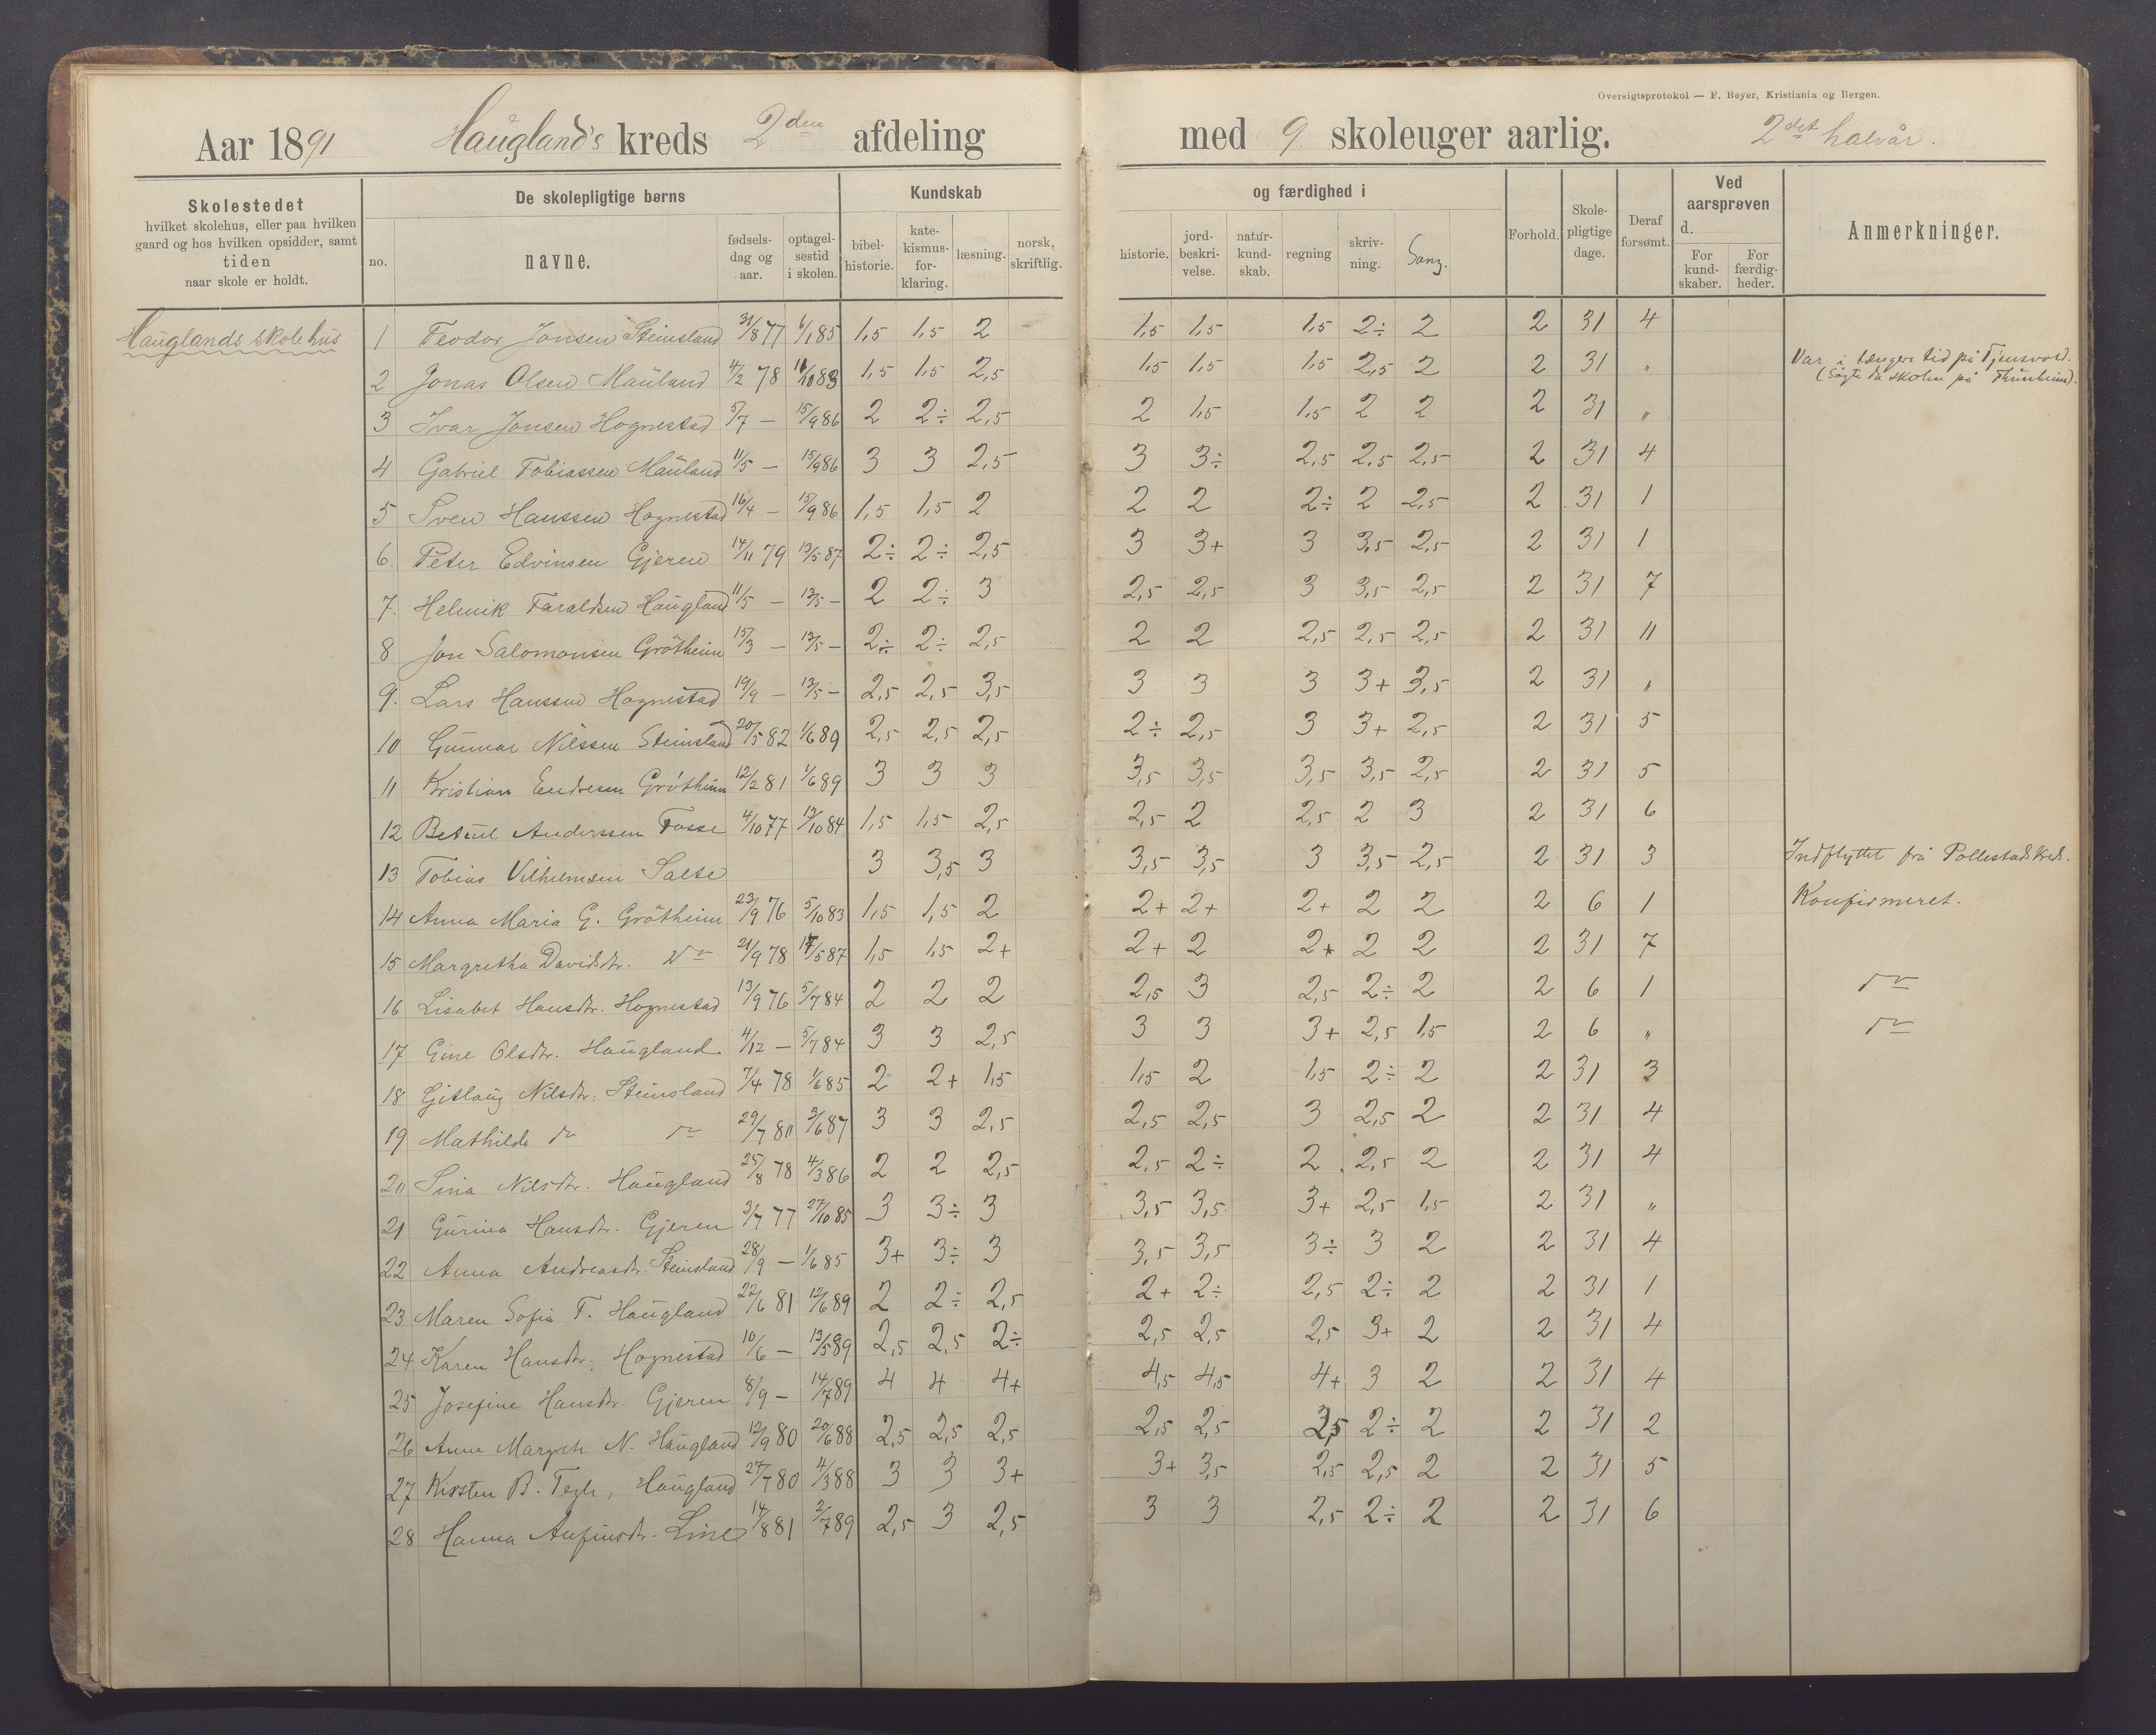 Oversigtsprotokol — F. Beyer, Kristiania og Bergen.
Aar 1891 Haugland's kreds 2den afdeling med 9 skoleuger aarlig. 2det halvår.
Skolestedet hvilket skolehus, eller paa hvilken gaard og hos hvilken opsidder, samt tiden naar skole er holdt.
De skolepligtige børns
no. navne. fødsels-dag og aar. optagel-sestid i skolen.
Kundskab og færdighed i
bibel-historie. kate-kismus-for-klaring. læsning. norsk, skriftlig. historie. jord-beskri-velse. natur-kund-skab. regning skriv-ning. Sang.
Forhold. Skole-pligtige dage. Deraf forsømt.
Ved aarsprøven d. For kund-skaber. For færdig-heder.
Anmerkninger.
Hauglands skolehus
1 Teodor Jonsen Steinsland 31/8 77 6/1 85 1,5 1,5 2 1,5 1,5 1,5 2÷ 2 2 31 4
2 Jonas Olsen Mauland 4/2 78 11/10 83 1,5 1,5 2,5 1,5 1,5 1,5 2,5 2 2 31 " Var i længere tid på Tjensvold. (Søgte da skolen på Thunheim).
3 Ivar Jonsen Hognestad 5/7 — 15/9 86 2 2÷ 2,5 2 1,5 1,5 2 2 2 31 "
4 Gabriel Tobiassen Mauland 11/5 — 15/9 86 3 3 2,5 3 3÷ 2,5 2,5 2,5 2 31 4
5 Sven Hanssen Hognestad 16/4 — 15/9 86 1,5 1,5 2 2 2 2÷ 2 2,5 2 31 1
6. Peter Edvinsen Gjeren 14/11 79 13/5 87 2÷ 2÷ 2,5 3 3+ 3 3,5 2,5 2 31 1
7. Helmik Taraldsen Haugland 11/5 — 13/5 — 2 2÷ 3 2,5 2,5 3 3,5 2,5 2 31 7
8 Jon Salomonsen Grötheim 15/3 — 13/5 — 2÷ 2÷ 2,5 2 2 2,5 2,5 2,5 2 31 11
9. Lars Hanssen Hognestad 19/9 — 13/5 — 2,5 2,5 3,5 3 3 3 3+ 3,5 2 31 "
10 Gunnar Nilssen Steinsland 20/5 82 1/6 89 2,5 2,5 2,5 2÷ 2,5 3 3+ 2,5 2 31 5
11 Kristian Endresen Grötheim 12/2 81 1/6 89 3 3 3 3,5 3,5 3,5 3,5 2,5 2 31 5
12 Betuel Anderssen Fosse 4/10 77 13/10 84 1,5 1,5 2,5 2,5 2 2,5 2 3 2 31 6
13 Tobias Vilhelmsen Salte 3 3,5 3 3,5 3,5 3 3,5 2,5 2 31 3 Indflyttet frå Pollestads kreds.
14 Anna Maria G. Grötheim 23/9 76 5/10 83 1,5 1,5 2 2+ 2+ 2+ 2 2 2 6 1 Konfirmeret.
15 Margretha Davidsdtr. do 21/9 78 17/5 87 1,5 1,5 2+ 2+ 2 2+ 2 2 2 31 7
16 Lisabet Hansdtr. Hognestad 13/9 76 5/7 84 2 2 2 2,5 3 2,5 2÷ 2 2 6 1 do
17 Gine Olsdtr. Haugland 4/12 — 5/7 84 3 3 2,5 3 3 3+ 2,5 1,5 2 6 " do
18 Gitlaug Nilsdtr. Steinsland 7/4 78 1/6 85 2 2+ 1,5 1,5 2 1,5 2÷ 2 2 31 3
19 Mathilde do do 29/7 80 3/6 87 3 3 2,5 2,5 2,5 3 2,5 2 2 31 4
20 Sina Nilsdtr. Haugland 25/8 78 4/3 86 2 2 2,5 2,5 2÷ 2 2,5 2 2 31 4
21 Gurina Hansdtr. Gjeren 3/7 77 27/10 85 3 3÷ 3 3,5 3,5 3+ 2,5 1,5 2 31 "
22 Anna Andreasdtr. Steinsland 28/9 — 1/6 85 3+ 3÷ 3 3,5 3,5 3÷ 3 2 2 31 4
23 Maren Sofia T. Haugland 22/6 81 12/6 89 2 2÷ 2,5 2+ 2÷ 2,5 2÷ 2 2 31 1
24 Karen Hansdtr. Hognestad 10/6 — 13/5 89 2,5 2,5 2÷ 2,5 2,5 2,5 3+ 2 2 31 4
25 Josefine Hansdtr. Gjeren 8/9 — 14/7 89 4 4 4+ 4,5 4,5 4+ 3 2 2 31 4
26 Anne Margrete N. Haugland 12/9 80 20/6 88 2,5 2,5 2,5 2,5 2,5 2,5 2÷ 2 2 31 2
27 Kirsten B. Haugland 27/7 80 4/3 88 3 3 3+ 3+ 3,5 2,5 2,5 2 2 31 5
28 Hanna Anfinsdtr. Line 14/8 81 2/7 89 2,5 3 2,5 3 3 2,5 2÷ 2 2 31 6